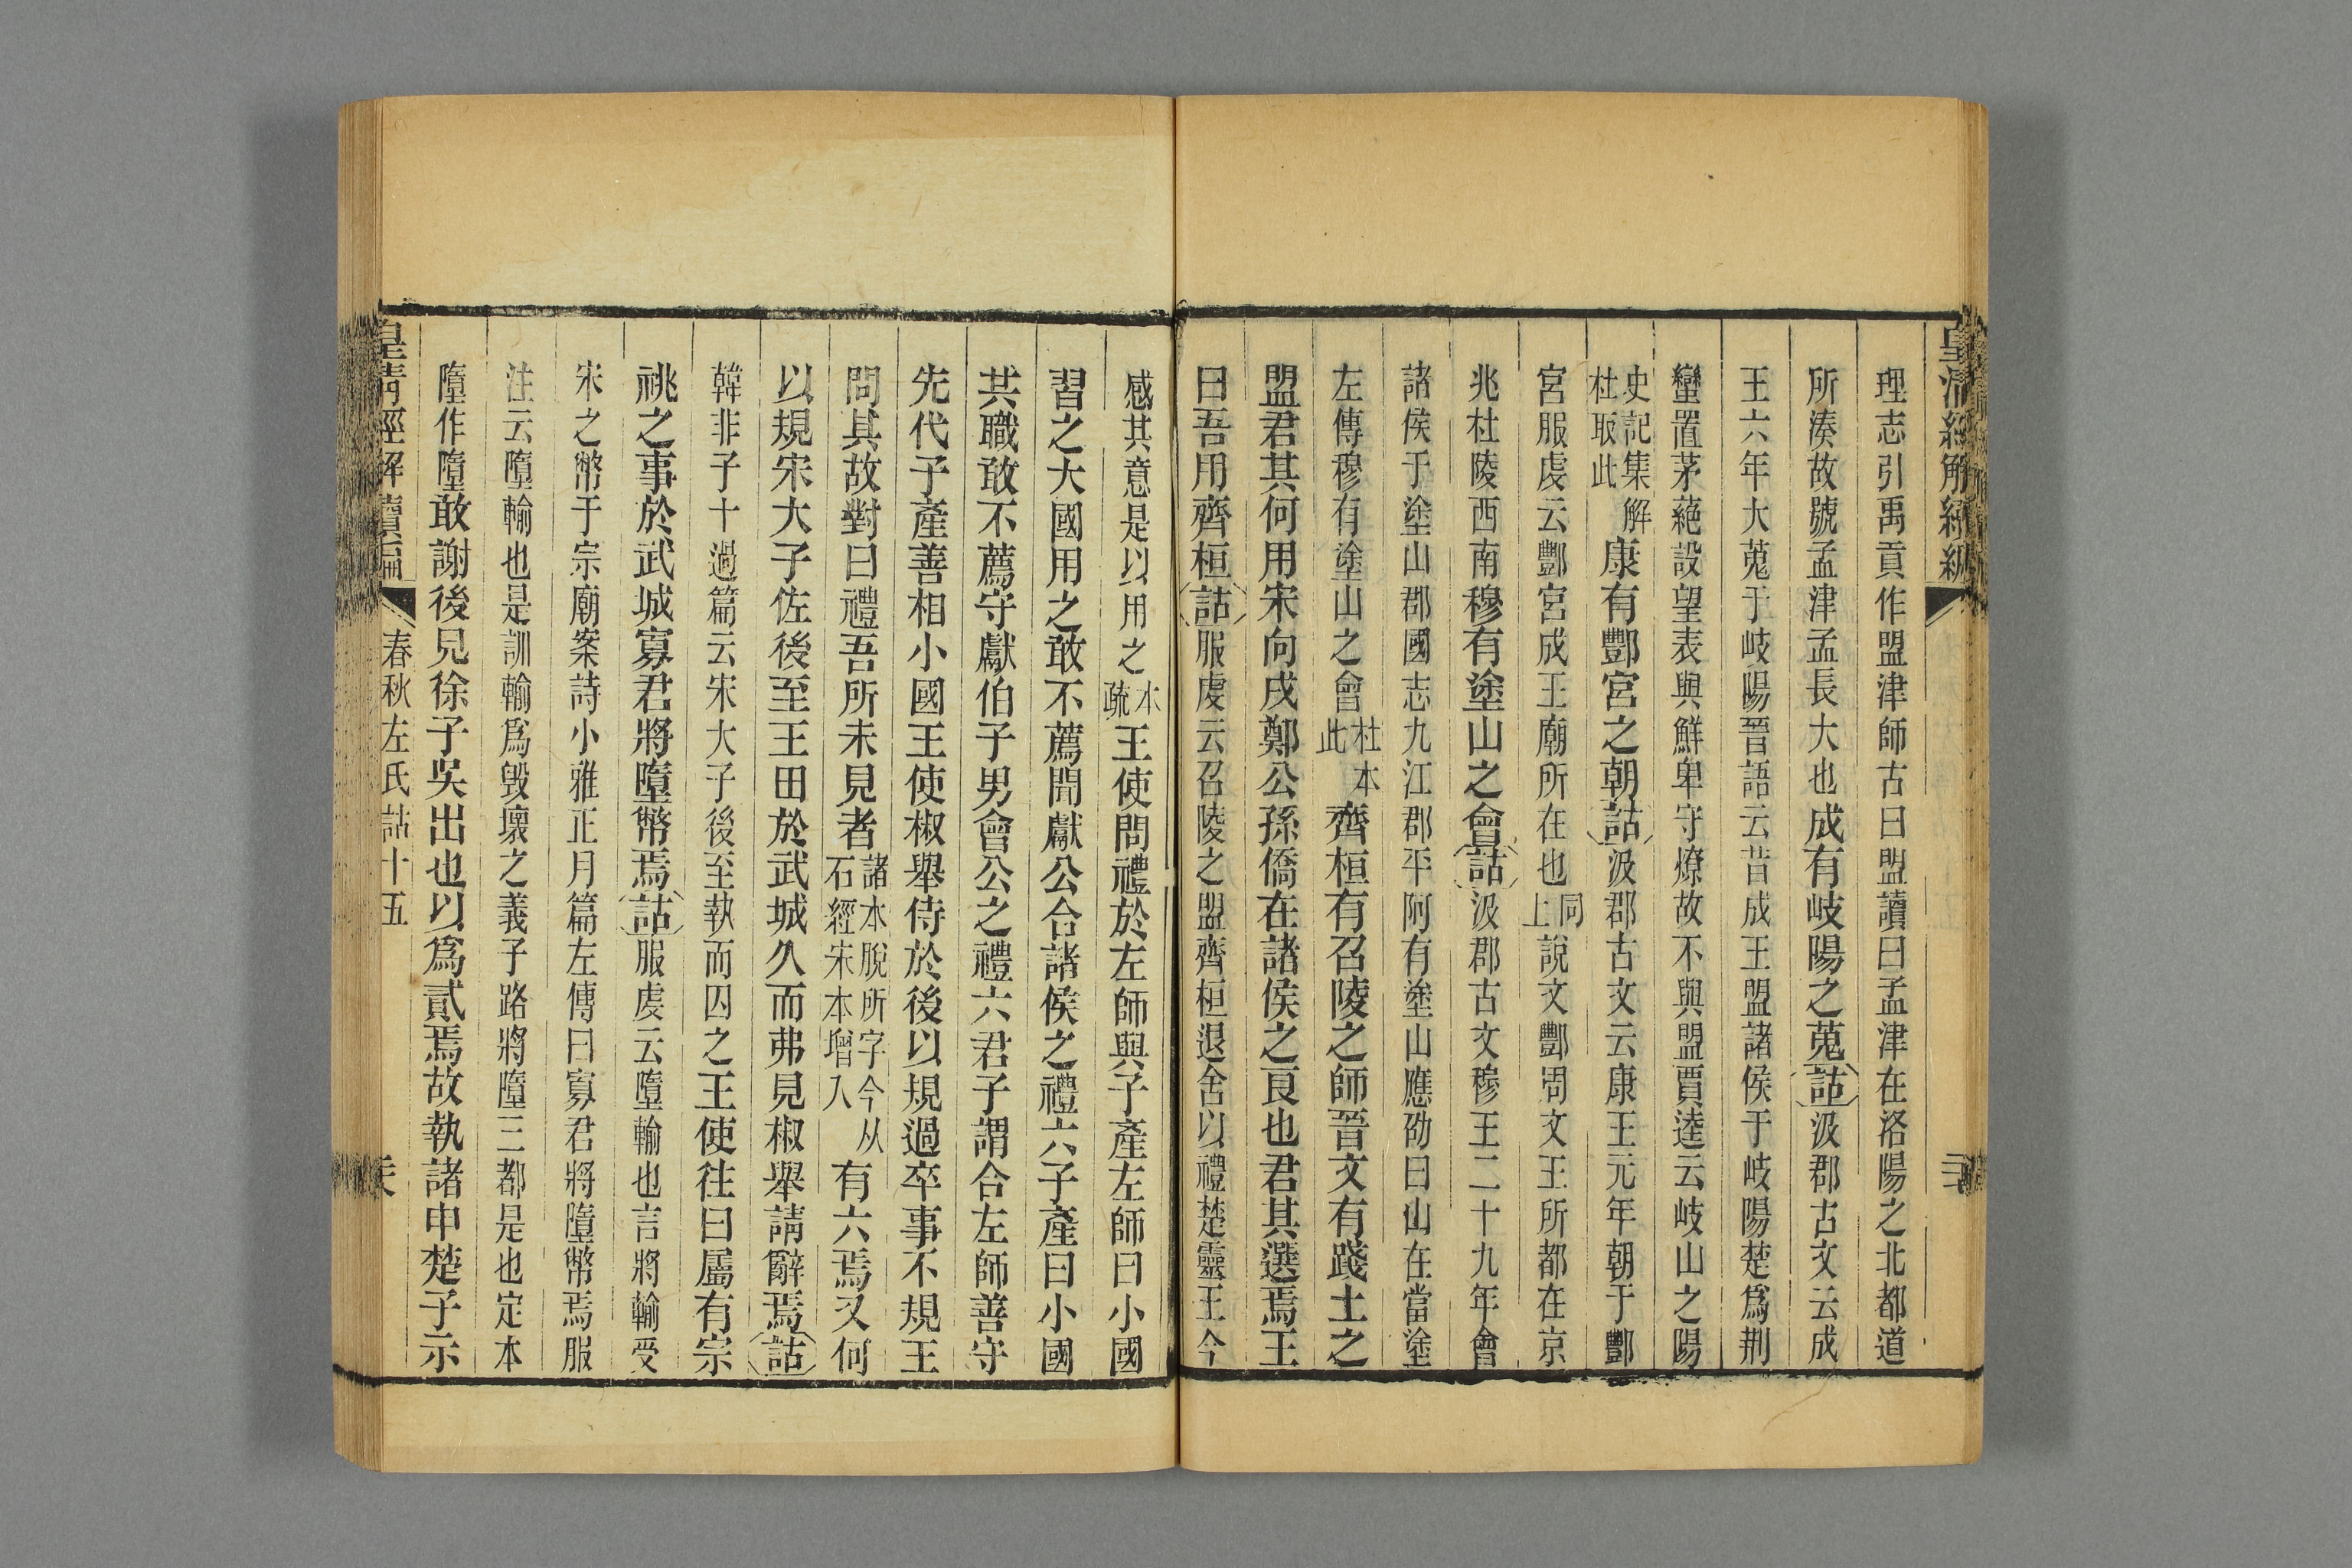 皇清經解續編
理志引禹貢作盟津師古曰盟讀曰孟津在洛陽之北都道
所湊故號孟津孟長大也成有岐陽之蒐詁汲郡古文云成
王六年大蒐于岐陽晉語云昔成王盟諸侯于岐陽楚爲荆
蠻置茅蕝設望表與鮮卑守燎故不與盟賈逵云岐山之陽
史記集解杜取此康有酆宮之朝詁汲郡古文云康王元年朝于酆
宮服虔云酆宮成王廟所在也同上說文酆周文王所都在京
兆杜陵西南穆有塗山之會詁汲郡古文穆王二十九年會
諸侯于塗山郡國志九江郡平阿有塗山應劭曰山在當塗
左傳穆有塗山之會杜本此齊桓有召陵之師晉文有踐土之
盟君其何用宋向戌鄭公孫僑在諸侯之良也君其選焉王
曰吾用齊桓詁服虔云召陵之盟齊桓退舍以禮楚靈王今
感其意是以用之本疏王使問禮於左師與子產左師曰小國
習之大國用之敢不薦聞獻公合諸侯之禮六子產曰小國
共職敢不薦守獻伯子男會公之禮六君子謂合左師善守
先代子產善相小國王使椒舉侍於後以規過卒事不規王
問其故對曰禮吾所未見者諸本脫所字今从石經宋本增入有六焉又何
以規宋大子佐後至王田於武城久而弗見椒舉請辭焉詁
韓非子十過篇云宋大子後至執而囚之王使往曰屬有宗
祧之事於武城寡君將墮幣焉詁服虔云墮輸也言將輸受
宋之幣于宗廟案詩小雅正月篇左傳曰寡君將墮幣焉服
注云墮輸也是訓輸爲毀壞之義子路將墮三都是也定本
墮作墯敢謝後見徐子吳出也以爲貳焉故執諸申楚子示
皇清經解續編
春秋左氏詁十五